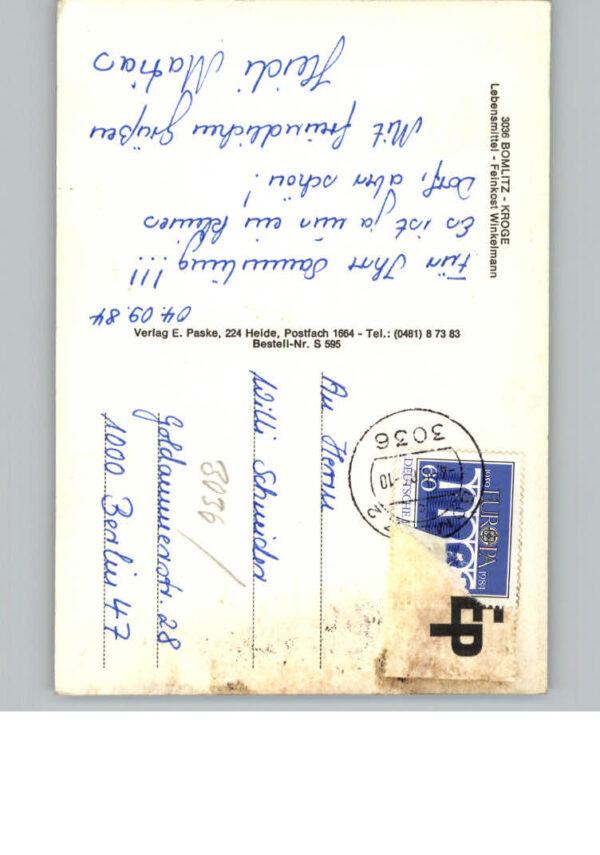 3036 BOMLITZ - KROGE
Lebensmittel - Feinkost Winkelmann
04.09.84
Für Ihre Sammlung!!!
Es ist ja nun ein kleines
Dorf, aber schön!
Mit freundlichen Grüßen
Heidi Matias
Verlag E. Paske, 224 Heide, Postfach 1664 - Tel.: (0481) 8 73 83
Bestell-Nr. S 595
An Herrn
Willi Schneider
Goldammerstr. 28
1000 Berlin 47
3036
3036
60
DEUTSCHE
EUROPA
1984
EP